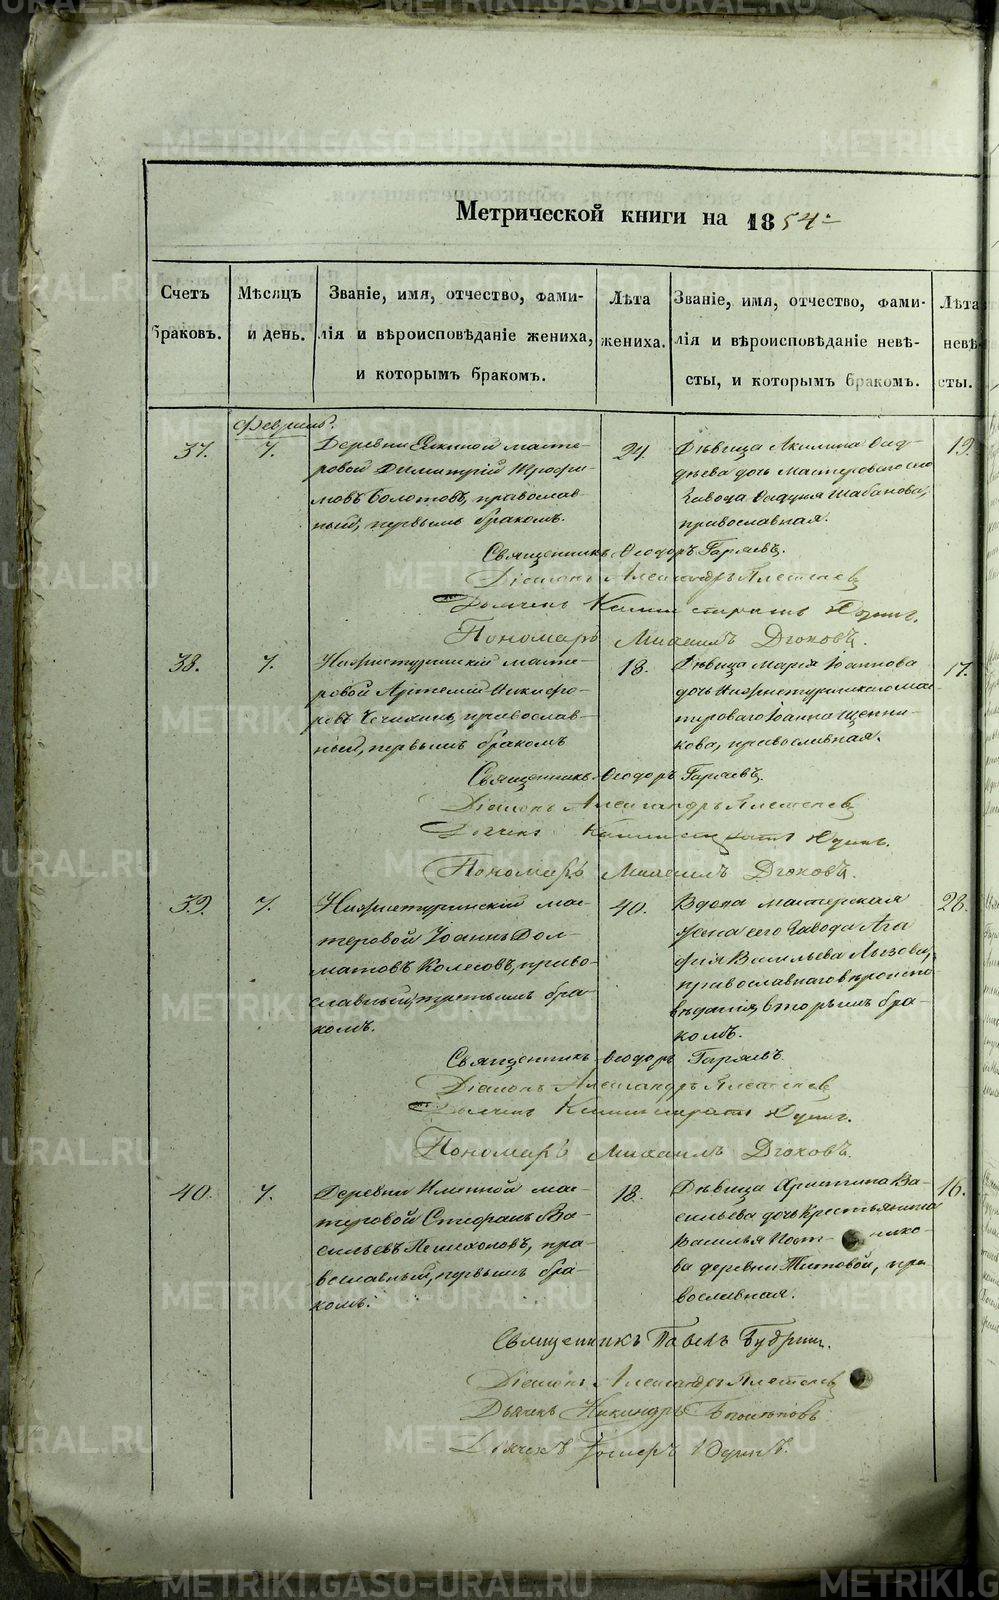 Метрической книги на 1854-
Счетъ браковъ.
Мѣсяцъ и день.
Званіе, имя, отчество, фами-
лія и вѣроисповѣданіе жениха,
и которымъ бракомъ.
Лѣта жениха.
Званіе, имя, отчество, фами-
лія и вѣроисповѣданіе невѣ-
сты, и которымъ бракомъ.
Лѣта невѣ-
сты.
Февраль.
37.
7.
Деревни Елкиной масте-
ровой Димитрій Трофи-
мовъ Болотовъ, православ-
ный, первымъ бракомъ.
24.
Дѣвица Акилина Фад-
дѣева дочь Мастероваго сего
Завода Фаддея Шабанова,
православная.
19.
Священникъ Ѳеодоръ Гаряевъ.
Діаконъ Александръ Плетенев
Дьячекъ Каллистратъ Юдинъ.
Пономарь Михаилъ Дюковъ.
38.
7.
Нижнетуринскій масте-
ровой Артемій Никифо-
ровъ Чечихинъ, православ-
ный, первымъ бракомъ
18.
Дѣвица Марія Іоаннова
дочь Нижнетуринскаго Мас-
тероваго Іоанна Щенни-
кова, православная.
17.
Священникъ Ѳеодоръ Гаряевъ.
Діаконъ Александръ Плетенев
Дьячекъ Каллистратъ Юдинъ.
Пономарь Михаилъ Дюковъ.
39.
7.
Нижнетуринскій мас-
теровой Іоаннъ Дол-
матовъ Колесовъ, право-
славный, третьимъ бра-
комъ.
40.
Вдова мастерская
жена сего Завода Ага
фія Васильева
православнаго вѣроиспо-
вѣданія, вторымъ бра-
комъ.
28.
Священникъ Ѳеодоръ Гаряевъ
Діаконъ Александръ Плетенев
Дьячекъ Каллистратъ Юдинъ.
Пономарь Михаилъ Дюковъ.
40.
7.
Деревни Именной мас-
теровой Стефанъ Ва-
сильевъ Пешехоловъ, пра-
вославный, первымъ бра-
комъ.
18.
Дѣвица Христина Ва-
сильева дочь Крестьянина
Василья
ва деревни Титовой, пра
вославная.
16.
Священникъ Павелъ Будринъ.
Діаконъ Александръ Плетенев
Дьячекъ Никандръ
Дьячекъ Юдинъ.
METRIKI.GASO-URAL.RU